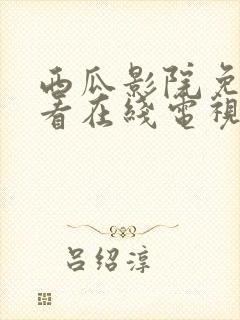 西瓜影院免
看在线電視
吕绍淳